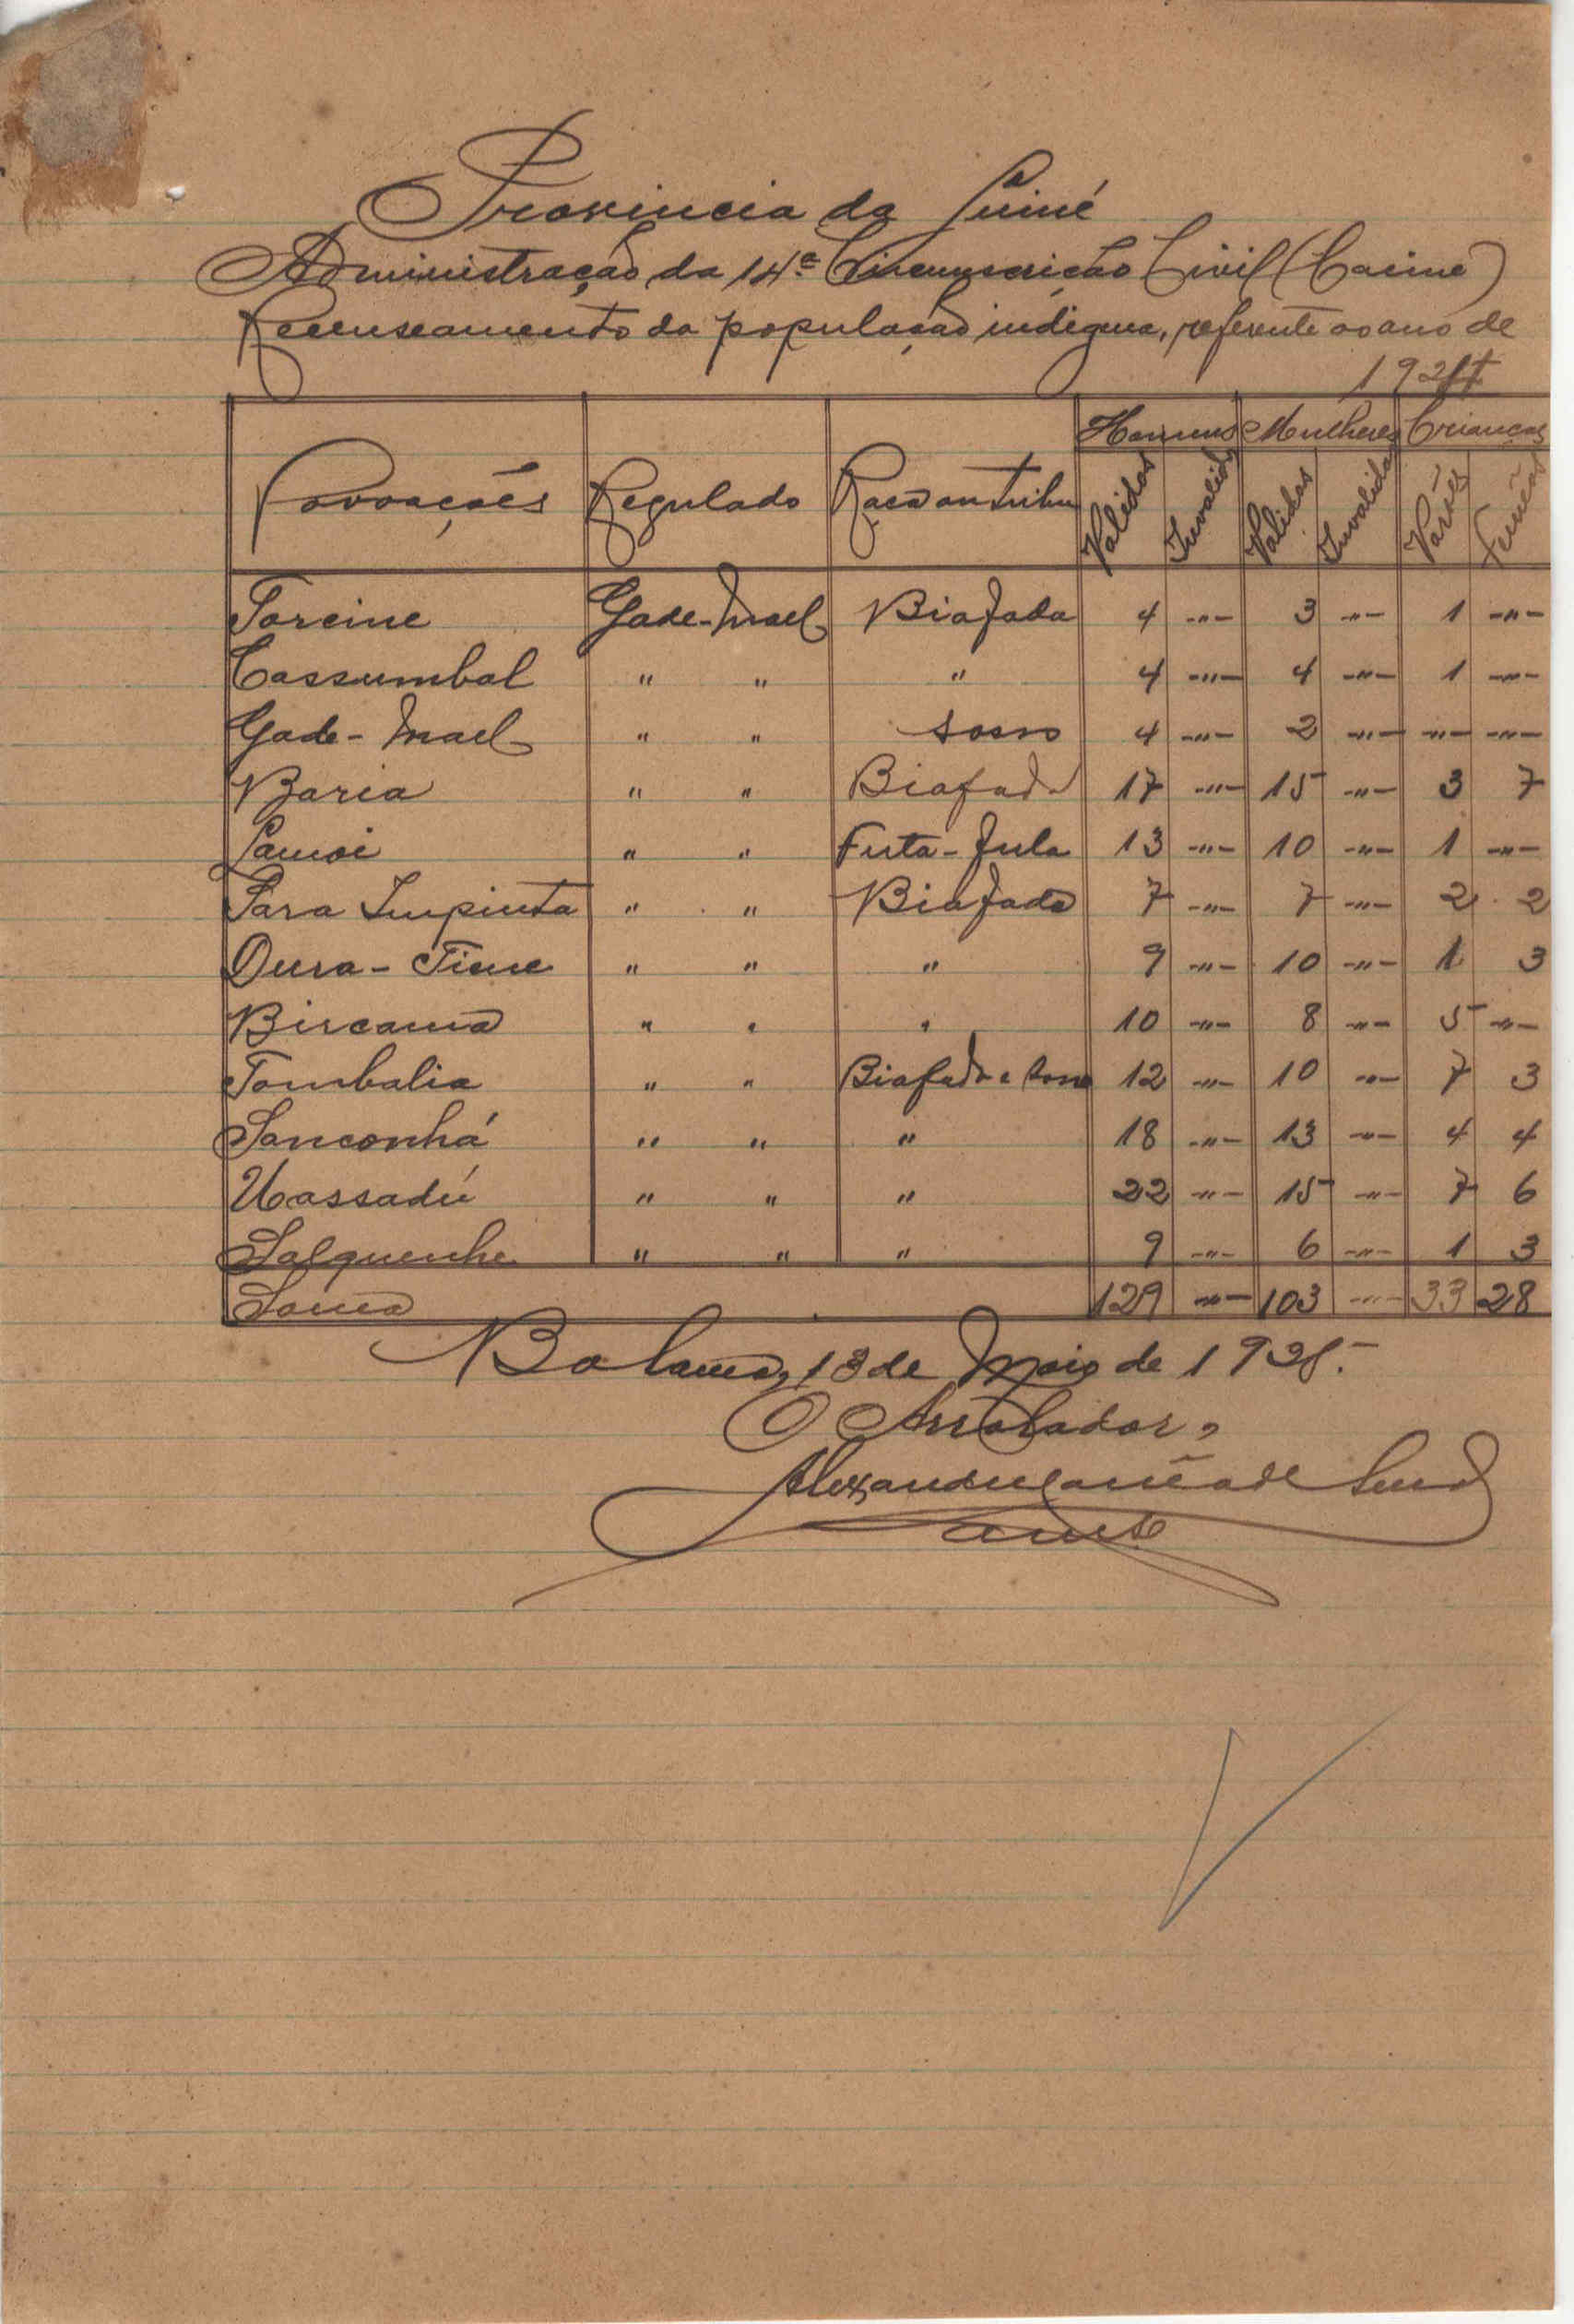 Provincia da Guiné
Administração da 14ª Circunscrição Civil (Cacine)
Recenseamento da população indigena, referente ao ano de
1924
Povoações Regulado Raça ou tribu Homens Mulheres Crianças
Validos Invalidos Validas Invalidas Varões Femeas
Toreine Gade-Mael Biafada 4 -"- 3 -"- 1 -"-
Cassumbal " " " 4 -"- 4 -"- 1 -"-
Gade-Mael " " Sosso 4 -"- 2 -"- -"- -"-
Baria " " Biafada 17 -"- 15 -"- 3 7
Lamoi " " Futa-Fula 13 -"- 10 -"- 1 -"-
Sara Impinta " " Biafada 7 -"- 7 -"- 2 2
Dura-Tiene " " " 9 -"- 10 -"- 1 3
Bircama " " " 10 -"- 8 -"- 5 -"-
Tombalia " " Biafada e Sosso 12 -"- 10 -"- 7 3
Sanconhá " " " 18 -"- 13 -"- 4 4
Uassadú " " " 22 -"- 15 -"- 7 6
Salquenhe " " " 9 -"- 6 -"- 1 3
Soma 129 -"- 103 -"- 33 28
Bolama, 13 de Maio de 1925.
O Arrolador,
Alexandre